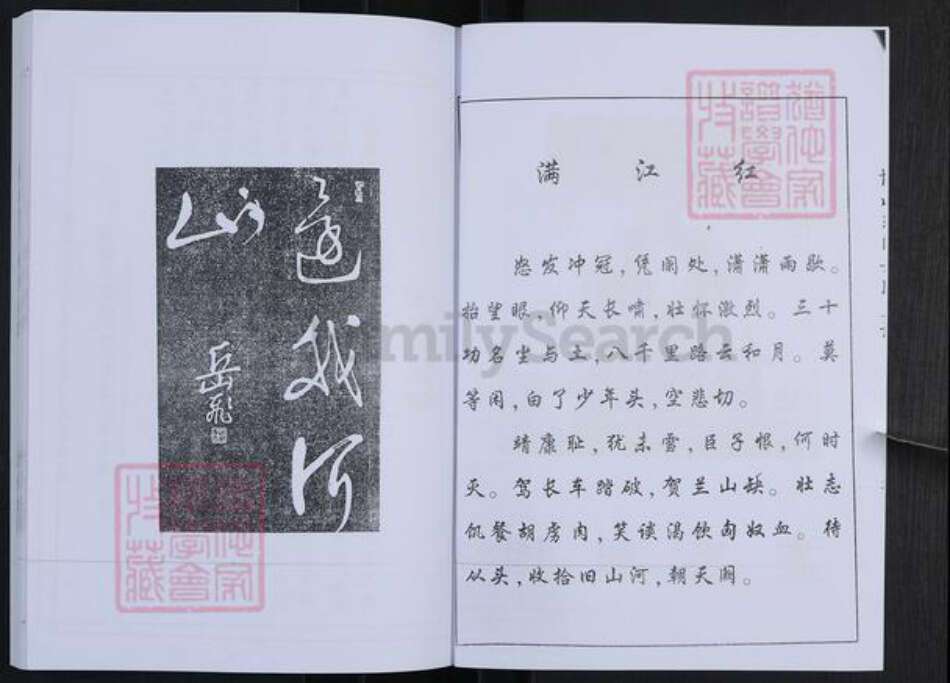 还我河
山
岳飞
满江红
怒发冲冠,凭阑处,潇潇雨歇。
抬望眼,仰天长啸,壮怀激烈。三十
功名尘与土,八千里路云和月。莫
等闲,白了少年头,空悲切。
靖康耻,犹未雪,臣子恨,何时
灭。驾长车踏破,贺兰山缺。壮志
饥餐胡虏肉,笑谈渴饮匈奴血。待
从头,收拾旧山河,朝天阙。
FamilySearch